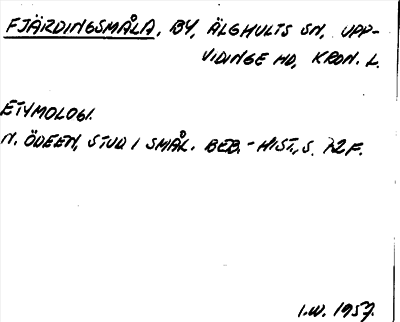 FJÄRDINGSMÅLA, BY, ÄLGHULTS SN, UPP-
VIDINGE HD, KRON. L.
ETYMOLOGI.
N. ÖDEEN, STUD I SMÅL. BEB.-HIST., S. 72F.
I.W. 1957.